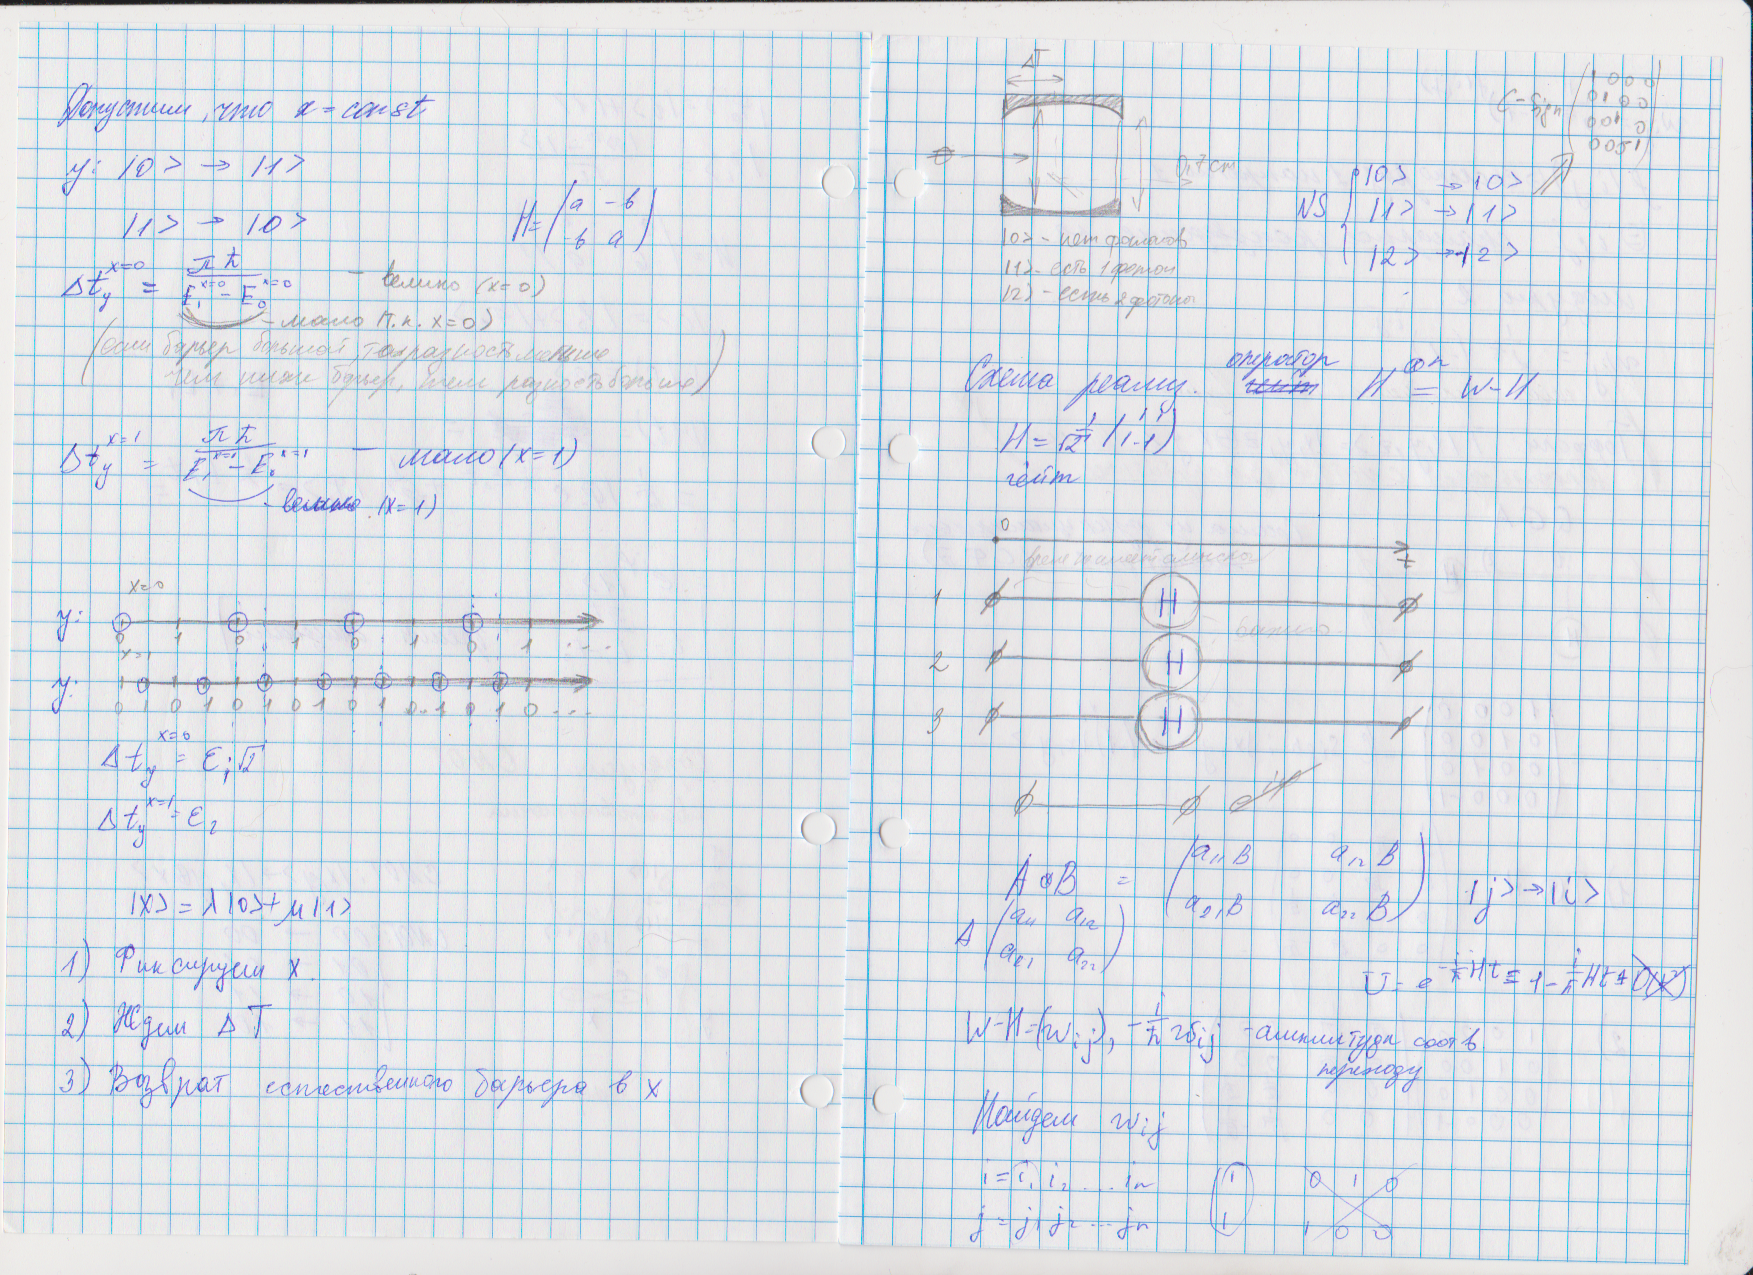 Допустим, что x = const
y: |0> → |1>
|1> → |0>
H = (a -b
-b a)
Δt_y^{x=0} = πħ / (E_1^{x=0} - E_0^{x=0}) - велико (x=0)
- мало (т.к. x=0)
(если барьер большой, то разность меньше
чем ниже барьер, тем разность больше)
Δt_y^{x=1} = πħ / (E_1^{x=1} - E_0^{x=1}) - мало (x=1)
- велико (x=1)
x=0
y:
0 1 0 1 0 1 0 1 ...
x=1
y:
0 1 0 1 0 1 0 1 0.. 1 0 1 0 ...
Δt_y^{x=0} = ε_1 √2
Δt_y^{x=1} = ε_2
|x> = λ|0> + μ|1>
1) Фиксируем x.
2) Ждем ΔT
3) Возврат естественного барьера в x
ΔT
0,7 cm
|0> - нет фотонов
|1> - есть 1 фотон
|2> - есть 2 фотоны
C-Sign (1 0 0 0
0 1 0 0
0 0 1 0
0 0 0 -1)
NS
|0> → |0>
|1> → |1>
|2> → |2>
Схема реализ. оператор H^{⊗n} = W-H
H = 1/√2 (1 1
1 -1)
гейт
0
t
1 H
2 H
3 H
A ⊗ B = (a_11 B a_12 B
a_21 B a_22 B)
|j> → |i>
A (a_11 a_12
a_21 a_22)
U = e^{-i/ħ Ht} = 1 - i/ħ Ht +
W-H = (w_ij), -i/ħ w_ij - амплитуда соотв.
переходу
Найдем w_ij
i = i_1 i_2 ... i_n
j = j_1 j_2 ... j_n
1
1
0 1 0
1 0 0